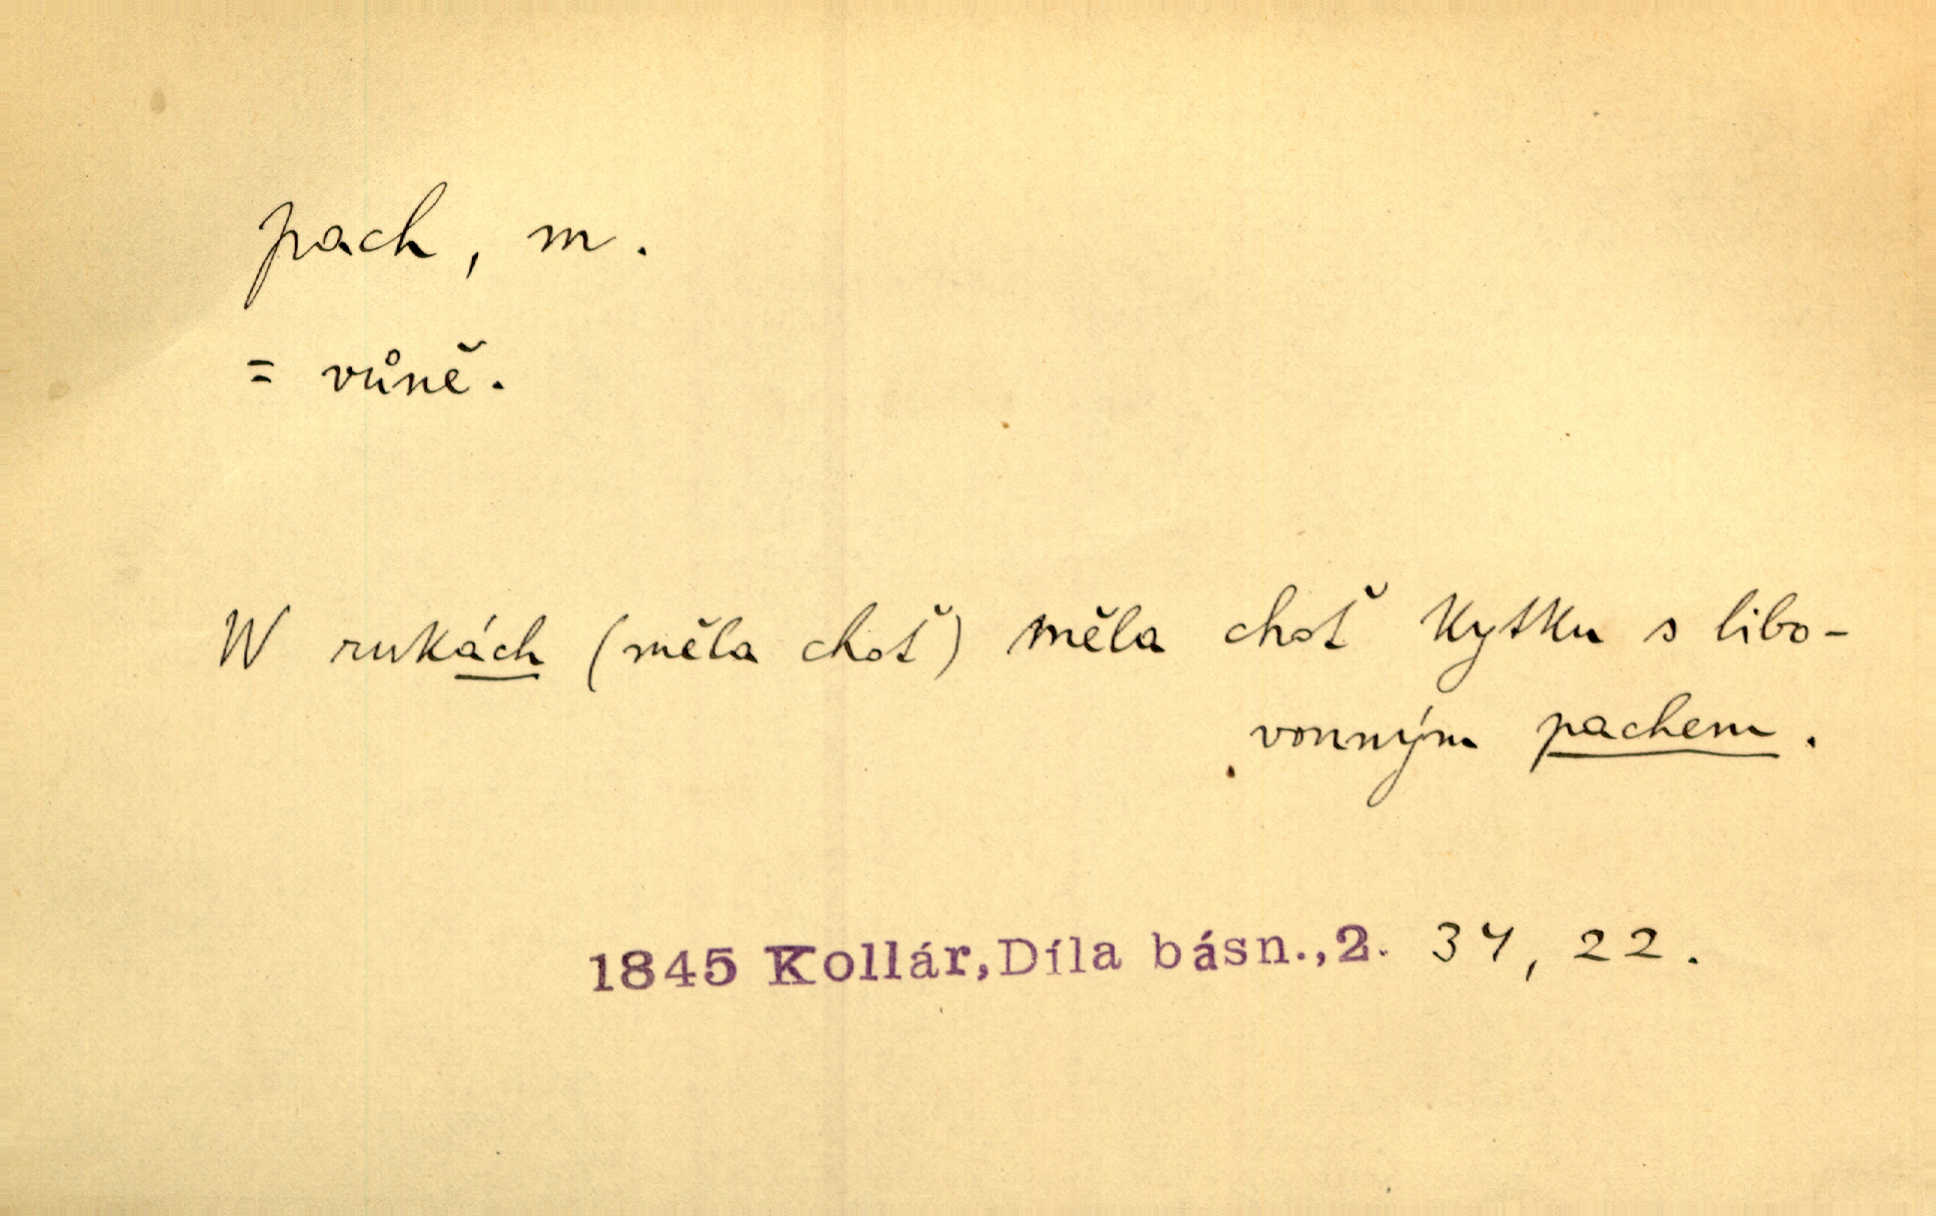 pach, m.
= vůně.
W rukách (měla choť) měla choť kytku s libo-
vonným pachem.
1845 Kollár, Díla básn., 2. 34, 22.